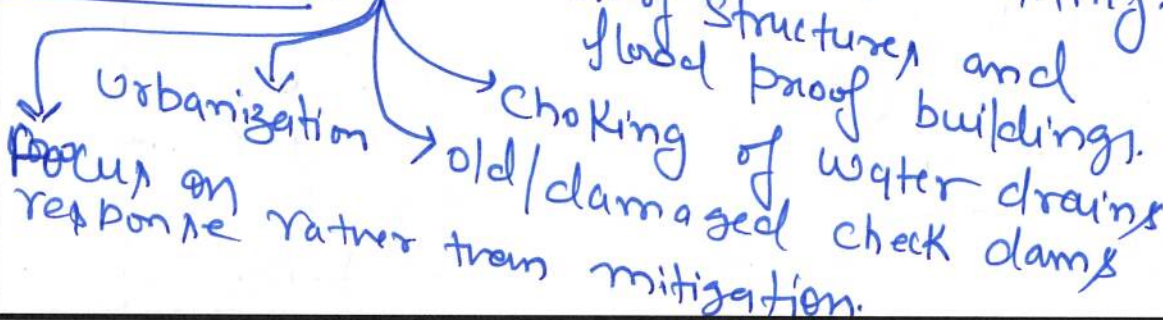 of structures and
flood proof buildings.
Urbanization
Choking of water drains
old/damaged check dams
Focus on
response rather than mitigation.